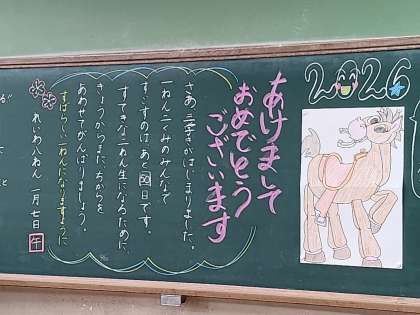 2026
あけまして
おめでとう
ございます
さあ 三学きがはじまりました。
一ねん二くみのみんなで
すごすのは あと 日です。
すてきな二ねん生になるために、
きょうからまた ちからを
あわせてがんばりましょう。
すばらしい一ねんになりますように
れいわ八ねん 一月七日 午